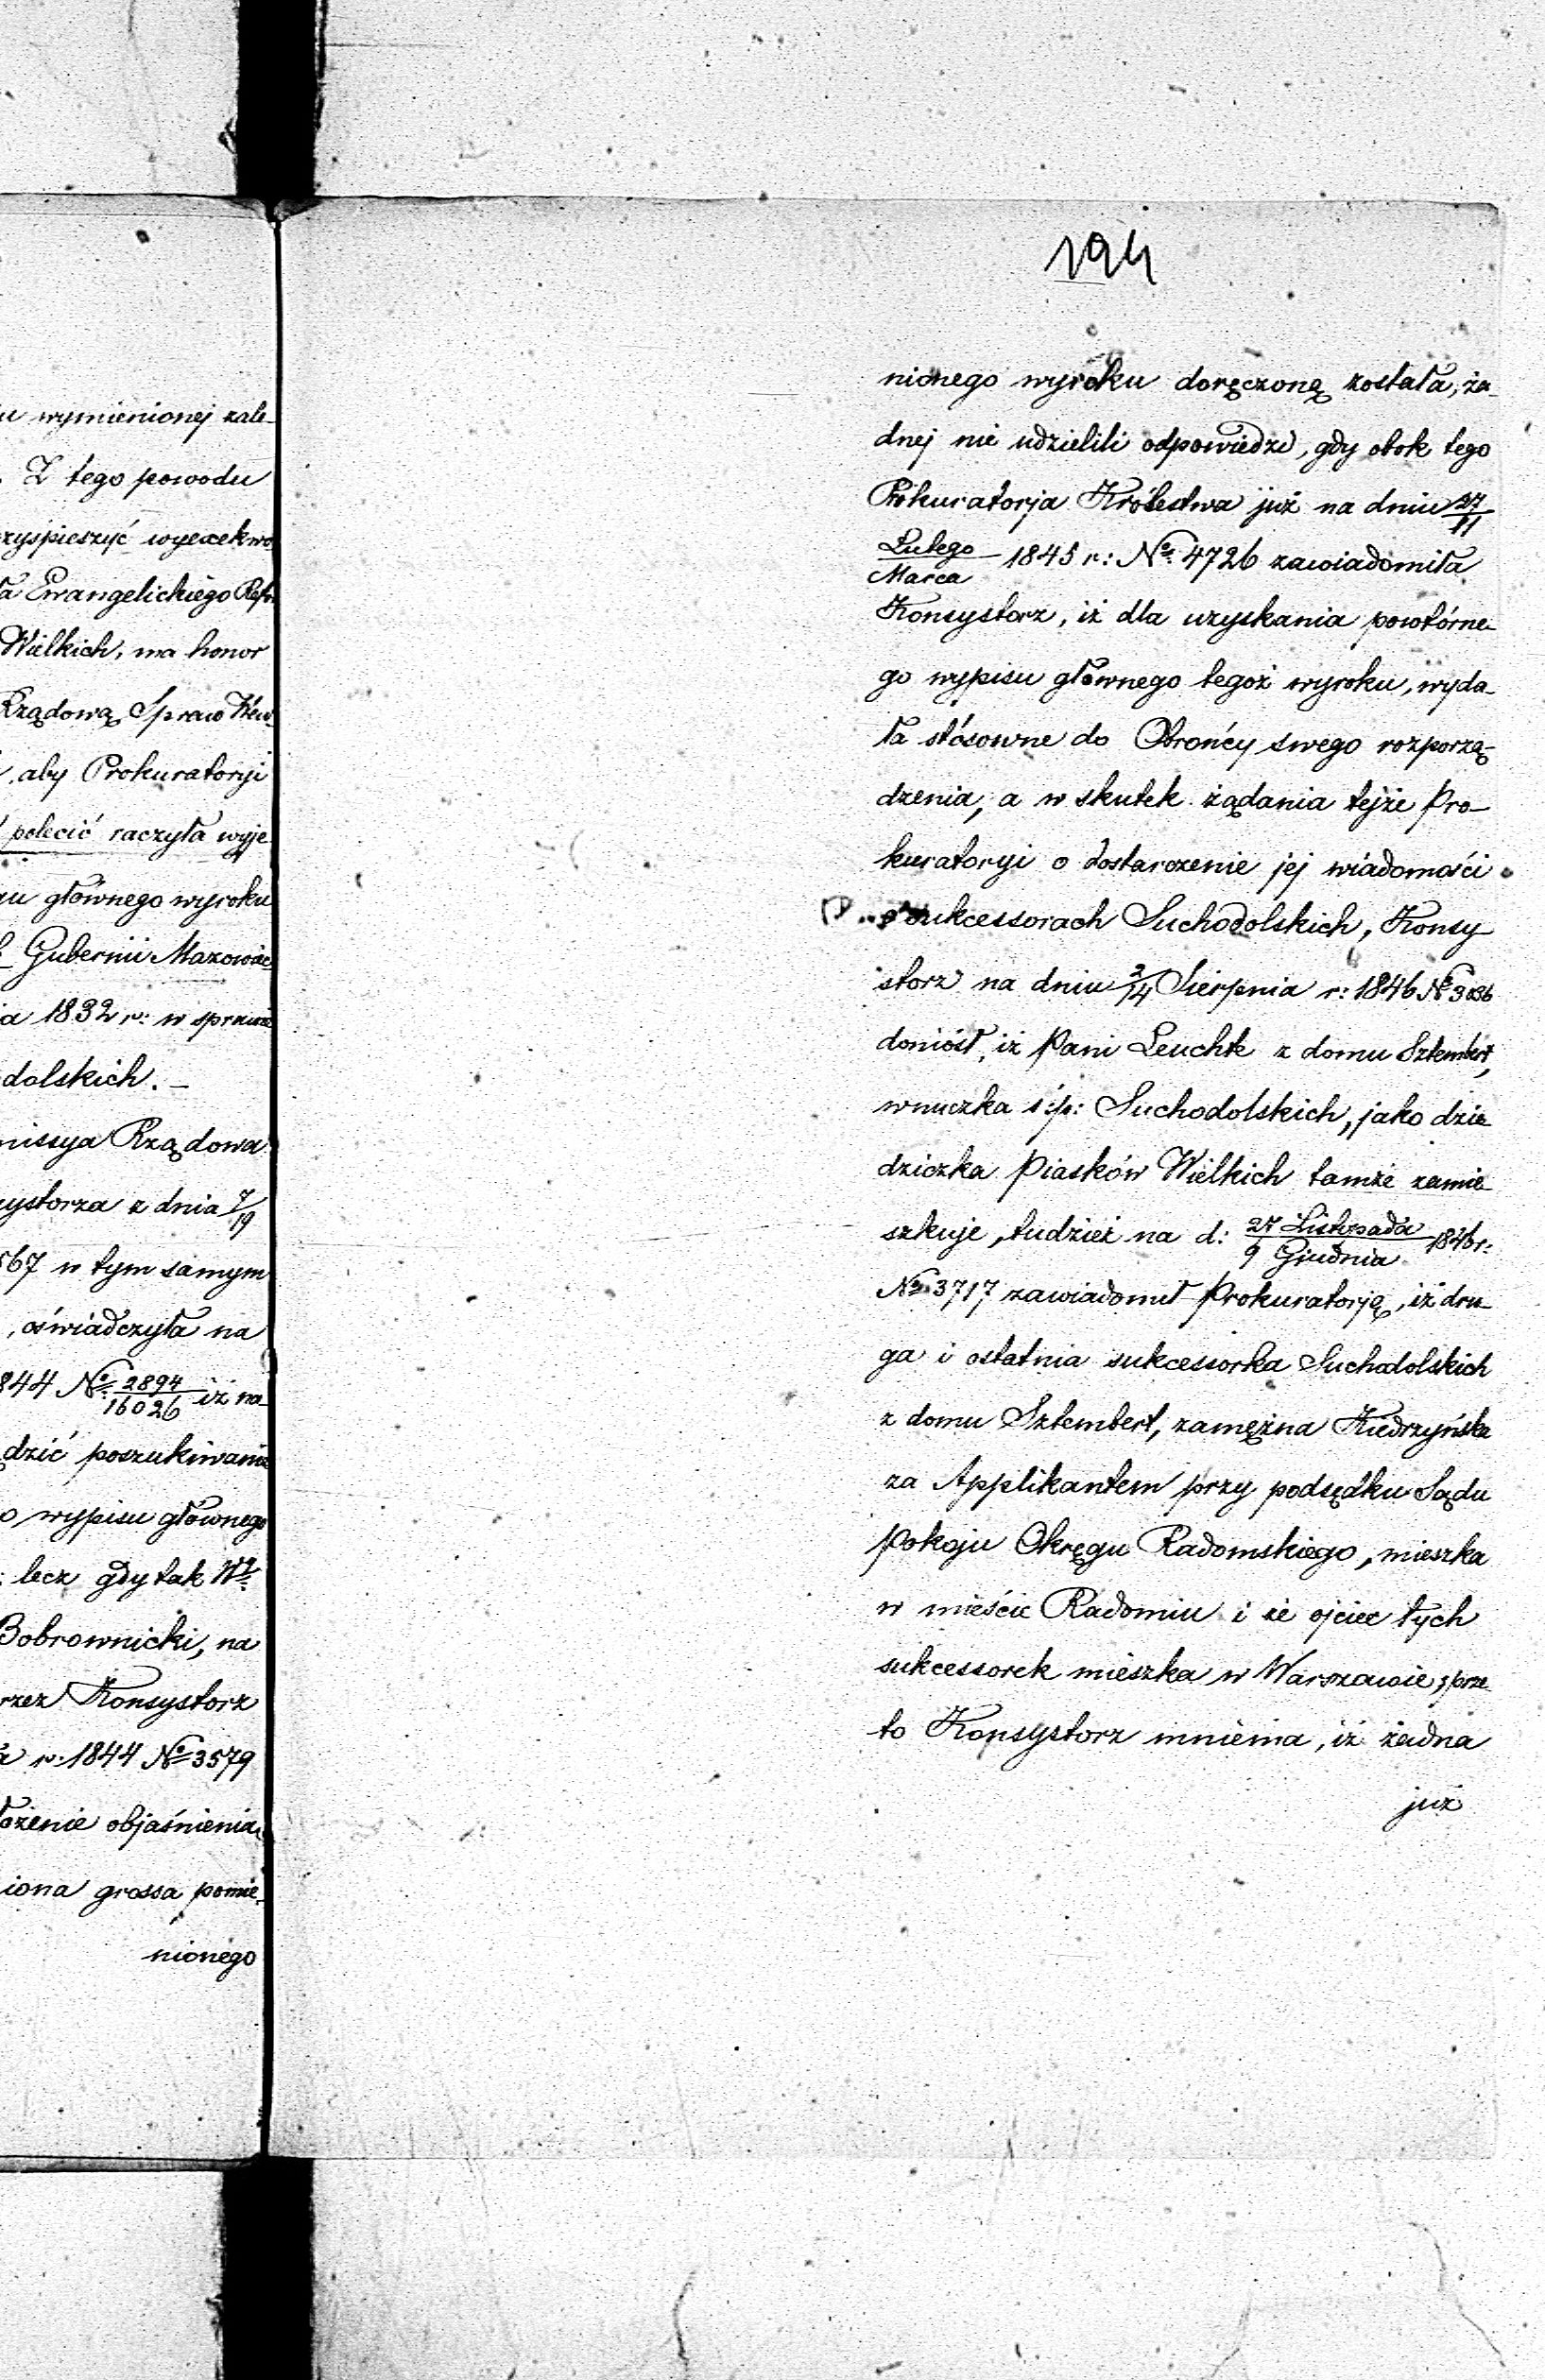 u wymienionej zale-
. Z tego powodu
zyspieszyć wyexekwo
ła Ewangelickiego Refr.
Wielkich, ma honor
Rządową Spraw Wew.
, aby Prokuratoryi
polecić raczyła wyje
gu głównego wyroku
Gubernii Mazowiec
ia 1832 r: w sprawie
dolskich. –
missya Rządowa
ystorza z dnia 7/19
567 w tym samym
, oświadczyła na
844 No 2894/16026 iż na-
dzić poszukiwania
o wypisu głównego
: lecz gdy tak
Bobrownicki, na
rzez Konsystorz
a r: 1844 No 3579
łożenie objaśnienia,
iona grossa pomie-
nionego
194
nionego wyroku doręczoną została, ża-
dnej nie udzielili odpowiedzi, gdy obok tego
Prokuratorja Królestwa już na dniu 27/11
Lutego/Marca 1845 r: No 4726 zawiadomiła
Konsystorz, iż dla uzyskania powtórne-
go wypisu głównego tegoż wyroku, wyda-
ła stósowne do Obrońcy swego rozporzą-
dzenia, a w skutek żądania tejże Pro-
kuratoryi o dostarczenie jej wiadomości
o sukcessorach Suchodolskich, Konsy
storz na dniu 2/14 Sierpnia r: 1846 No 3036
doniósł, iż Pani Leuchte z domu Sztembert,
wnuczka ś:p: Suchodolskich, jako dzie-
dziczka Piasków Wielkich tamże zamie-
szkuje, tudzież na d: 27 Listopada/9 Grudnia 1846 r:
No 3717 zawiadomił Prokuratorją, iż dru-
ga i ostatnia sukcessorka Suchodolskich
z domu Sztembert, zamężna Kiedrzyńska
za Applikantem przy podsędku Sądu
Pokoju Okręgu Radomskiego, mieszka
w mieście Radomiu i że ojciec tych
sukcessorek mieszka w Warszawie; prze
to Konsystorz mniema, iż żadna
już